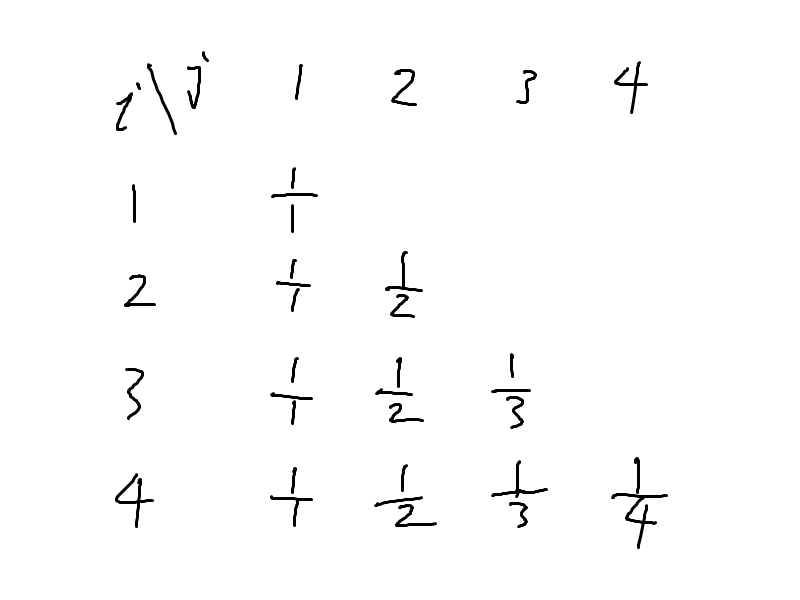 i\j 1 2 3 4
1 1/1
2 1/1 1/2
3 1/1 1/2 1/3
4 1/1 1/2 1/3 1/4